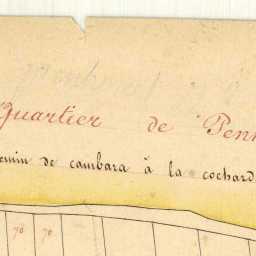 Quartier de Penn
emin de cambara à la cochard
70 70